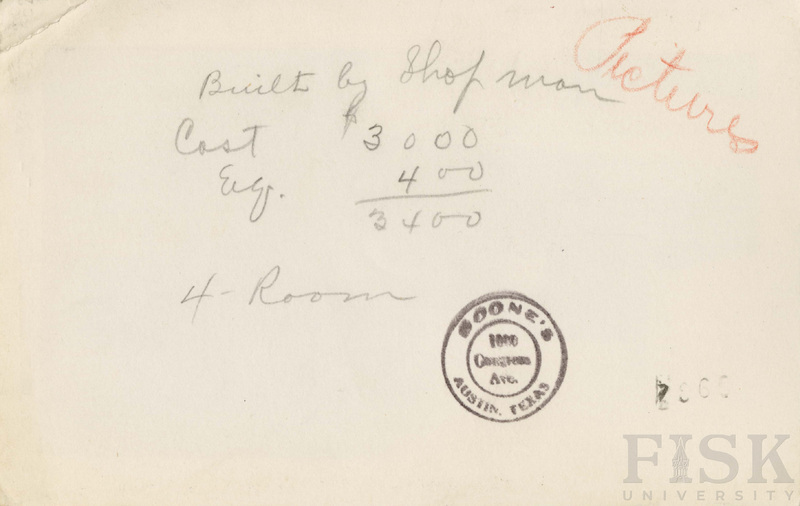 Pictures
Built by Shop man
Cost $3000
Eq. 400
3400
4-Room
BOONE'S
Congress
Ave.
AUSTIN, TEXAS
FISK
UNIVERSITY